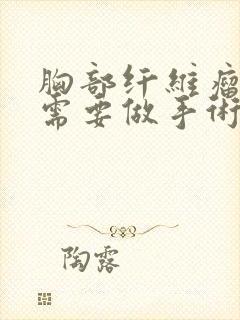 胸部纤维瘤
需要做手术
陶露